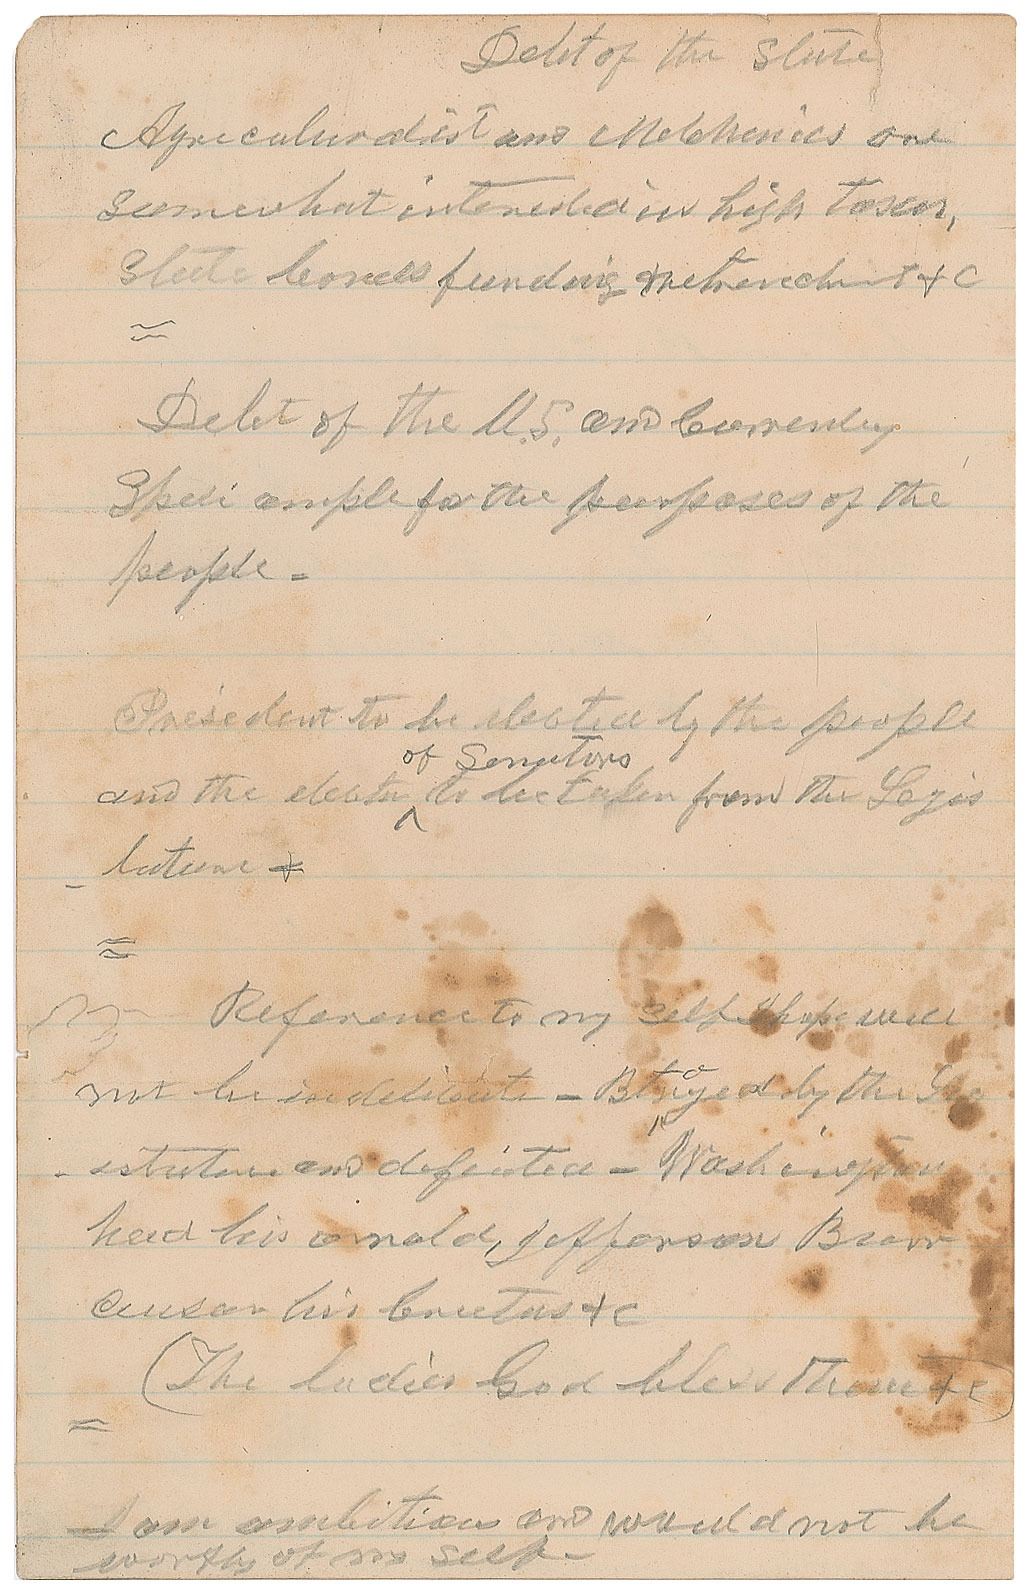 Debt of the State
Agriculturalist and Mechanics are
Somewhat interested in high taxes,
State bonds funding retrenchmt + C
Debt of the U.S. and Currency
Speci ample for the purposes of the
people =
President to be elected by the people
of Senators
and the election to be taken from the Legis
lature +
Reference to my Self I hope will
not be indelicate - Btrayed by the
and defeated - Washington
had his arnold, Jefferson Burr
Ceusar his Brutus + c
(The ladies God bless them + c)
I am ambitious and would not be
worthy of my Self -